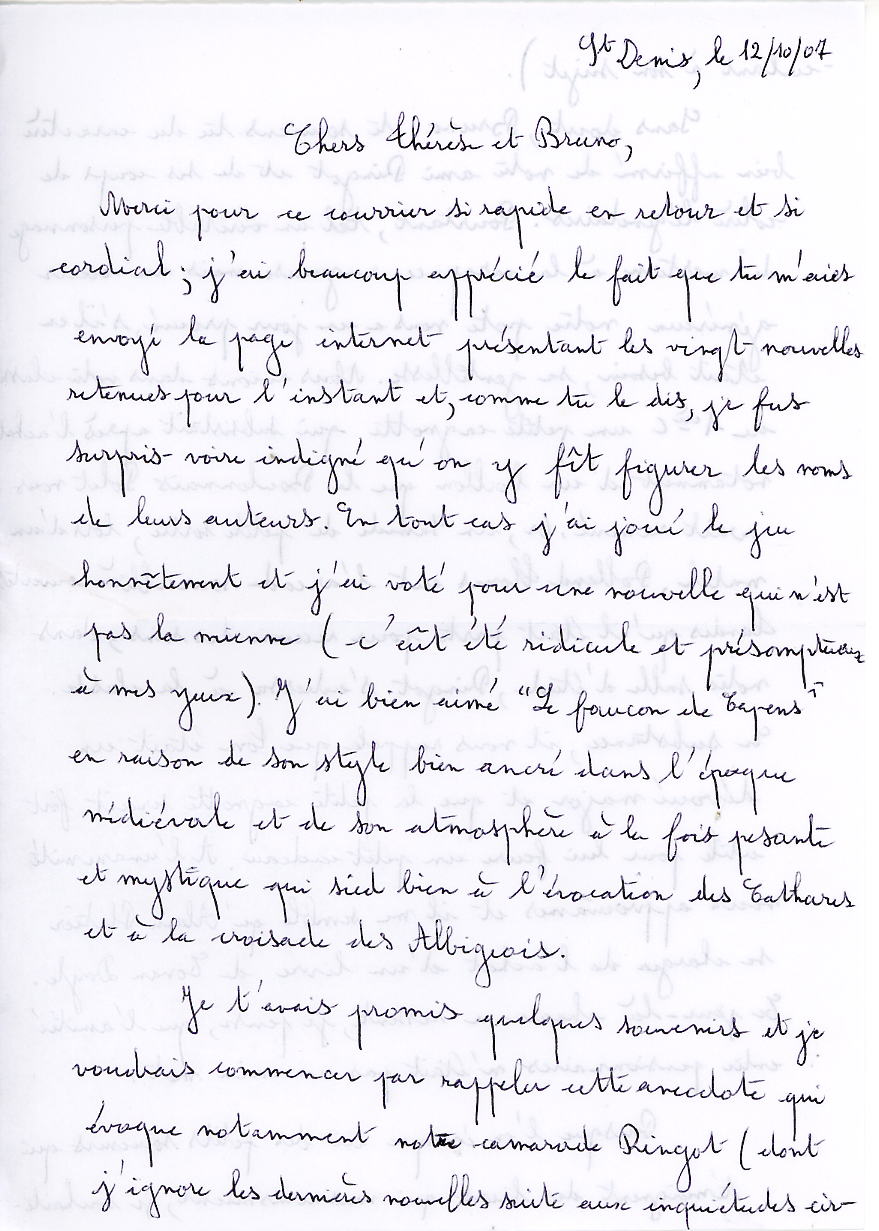 St Denis, le 12/10/07
Chers Thérèse et Bruno,
Merci pour ce courrier si rapide en retour et si
cordial ; j'ai beaucoup apprécié le fait que tu m'aies
envoyé la page internet présentant les vingt nouvelles
retenues pour l'instant et, comme tu le dis, je fus
surpris - voire indigné qu'on y fît figurer les noms
de leurs auteurs. En tout cas j'ai joué le jeu
honnêtement et j'ai voté pour une nouvelle qui n'est
pas la mienne (c'eût été ridicule et présomptueux
à mes yeux). J'ai bien aimé "Le faucon de Capens"
en raison de son style bien ancré dans l'époque
médiévale et de son atmosphère à la fois pesante
et mystique qui sied bien à l'évocation des Cathares
et à la croisade des Albigeois.
Je t'avais promis quelques souvenirs et je
voudrais commencer par rappeler cette anecdote qui
évoque notamment notre camarade Ringot (dont
j'ignore les dernières nouvelles suite aux inquiétudes cir-